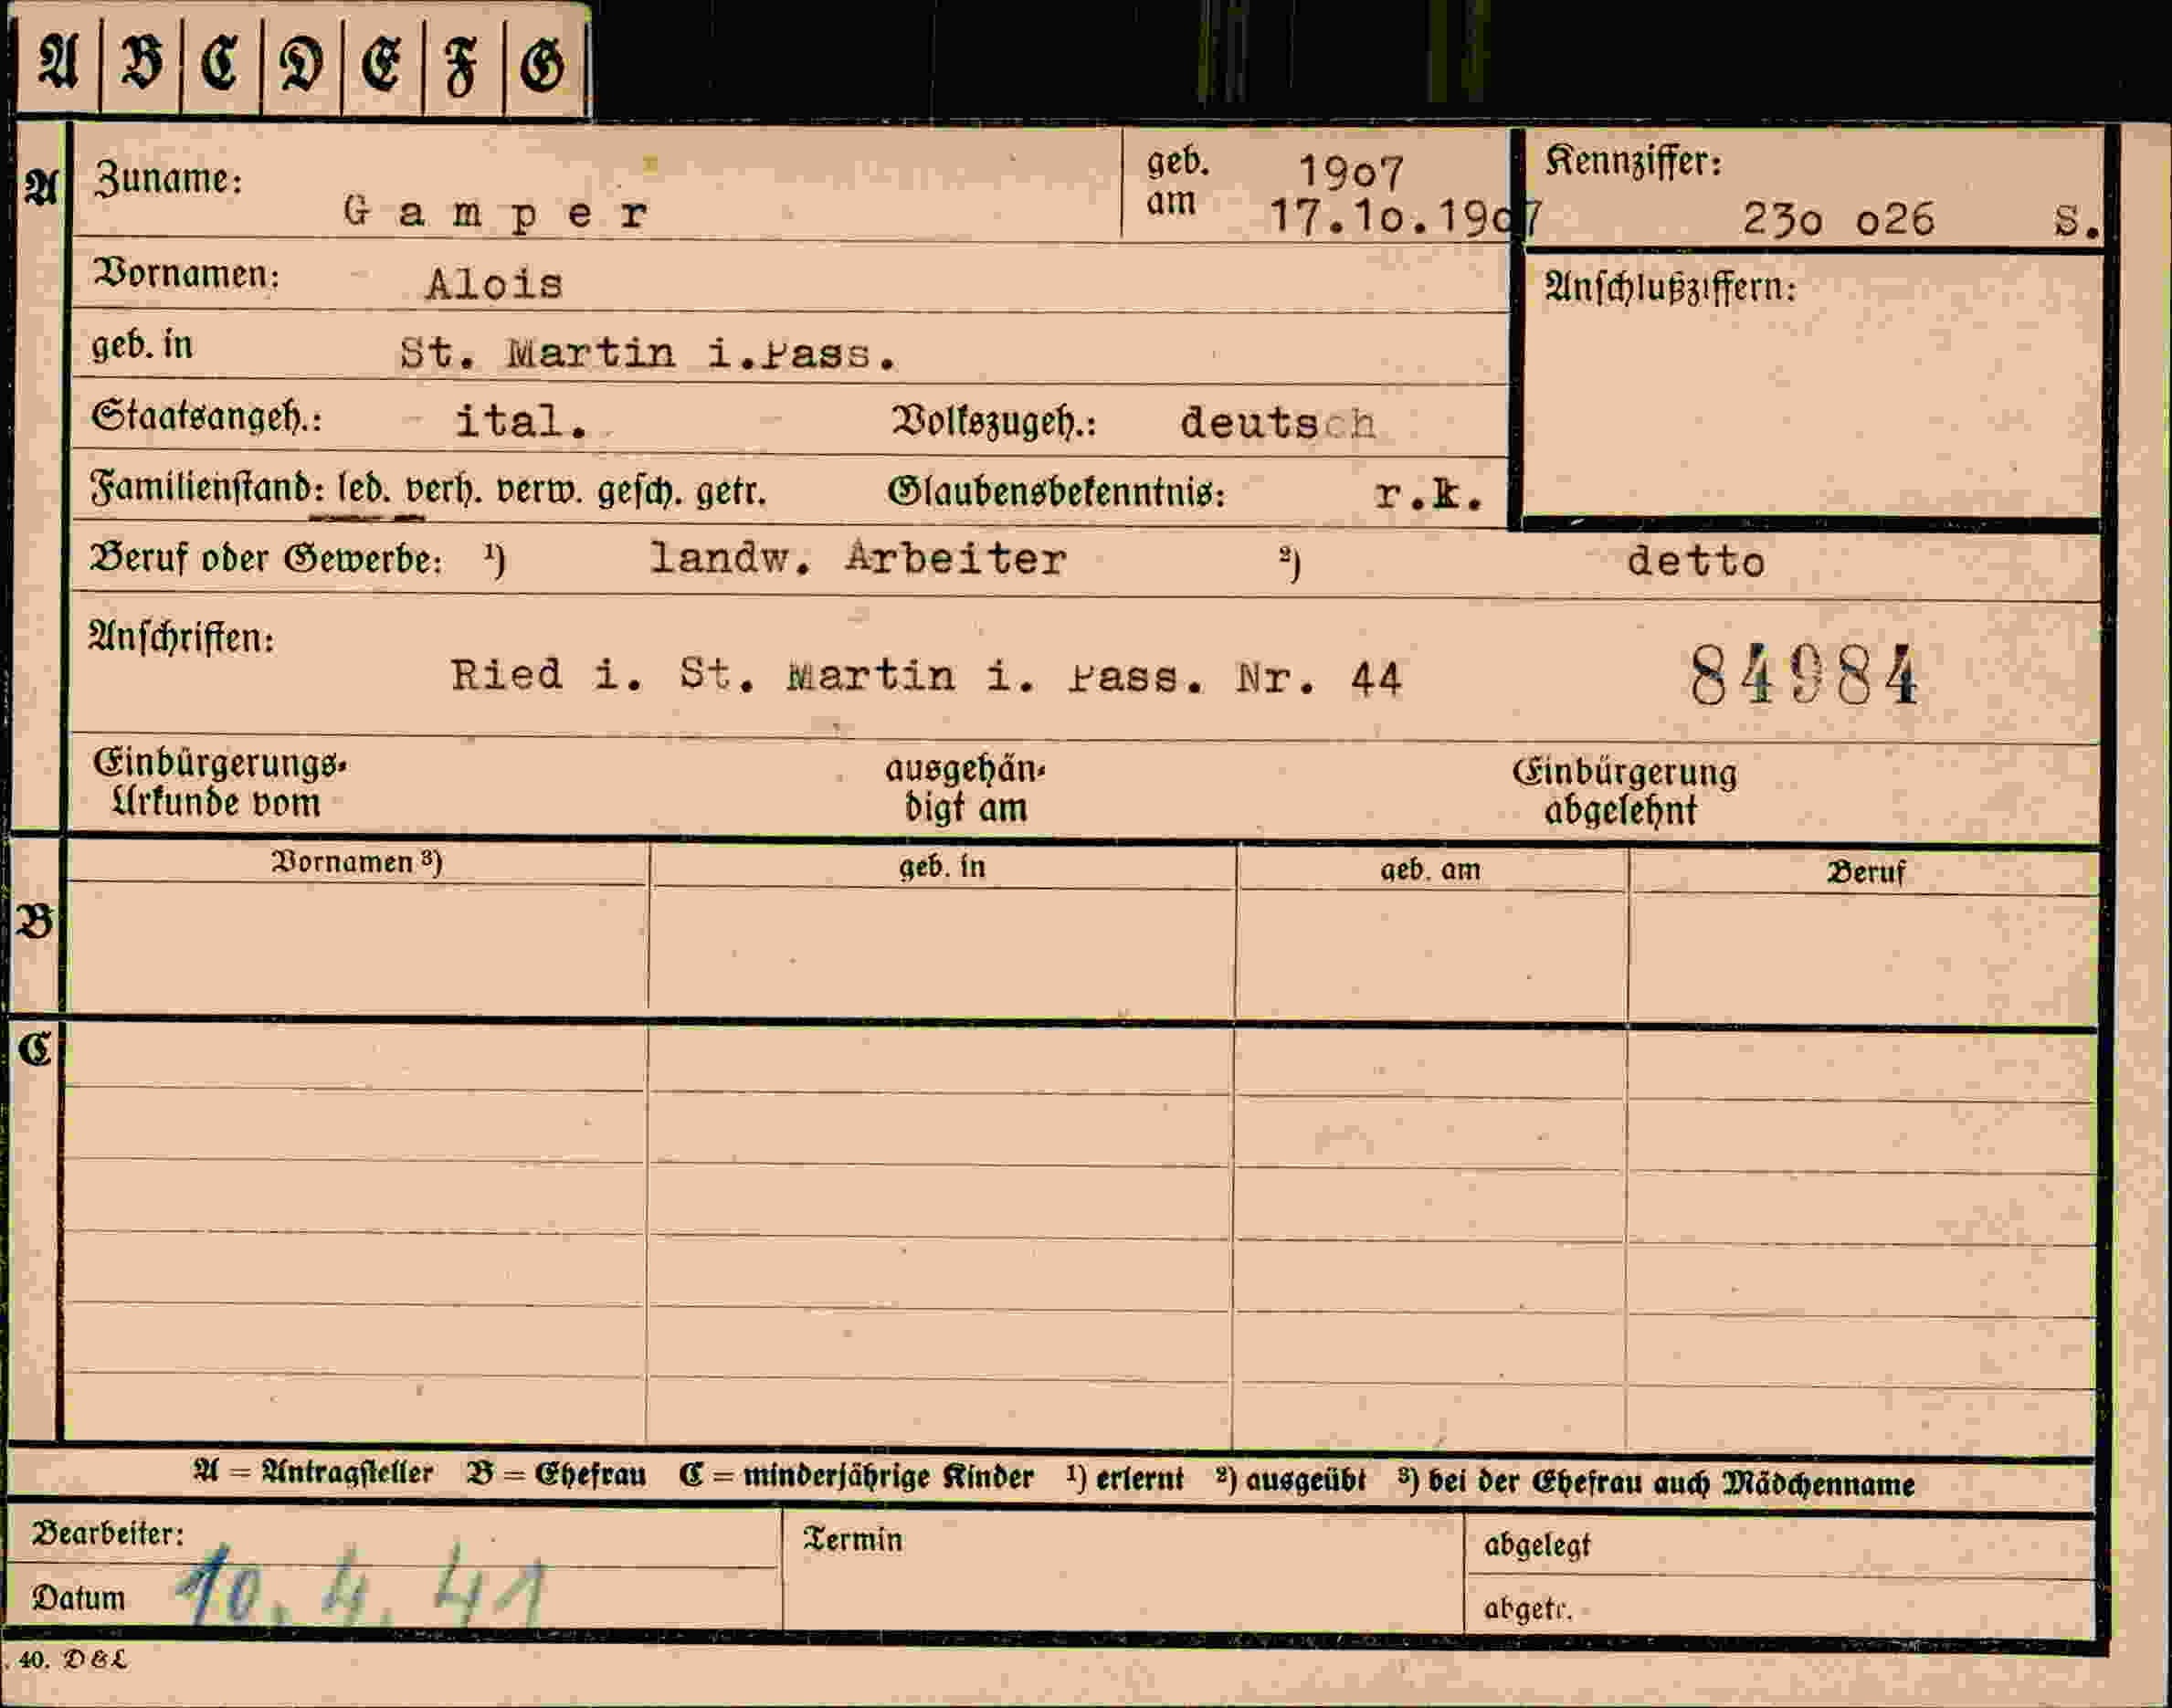 A B C D E F G
A Zuname: Gamper geb. am 1907 17.10.1907 Kennziffer: 230 026 S.
Vornamen: Alois Anschlußziffern:
geb. in St. Martin i.Pass.
Staatsangeh.: ital. Volkszugeh.: deutsch
Familienstand: led. verh. verw. gesch. getr. Glaubensbekenntnis: r.k.
Beruf oder Gewerbe: ¹) landw. Arbeiter ²) detto
Anschriften: Ried i. St. Martin i. Pass. Nr. 44 84984
Einbürgerungs- ausgehän- Einbürgerung
Urkunde vom digt am abgelehnt
Vornamen ³) geb. in geb. am Beruf
B
C
A = Antragsteller B = Ehefrau C = minderjährige Kinder ¹) erlernt ²) ausgeübt ³) bei der Ehefrau auch Mädchenname
Bearbeiter: Termin abgelegt
Datum 10. 4. 41 abgetr.
. 40. D & L